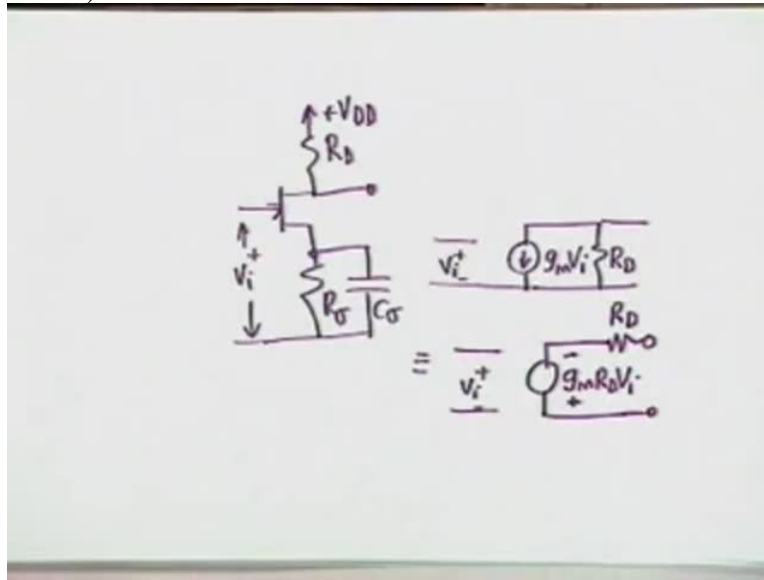 +VDD
RD
Vi +
Rσ Cσ
Vi + - gmVi RD
≡ Vi + - gmRDVi - + RD